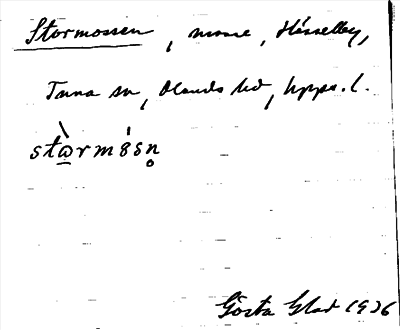 Stormossen, mosse, Hässelby,
Tuna sn, Olands hd, Upps. l.
stὼ̲rmósn̥
Gösta Glad 1926